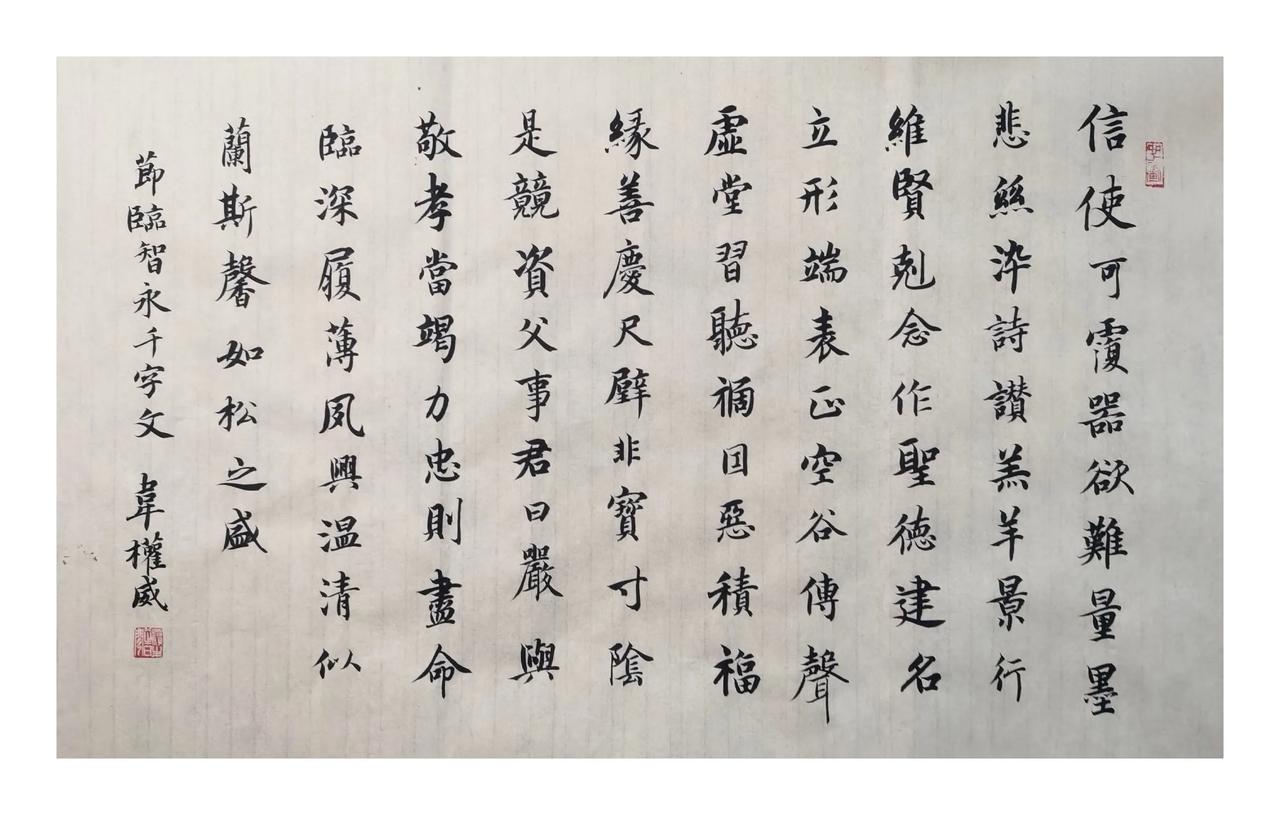 信使可覆器欲難量墨
悲絲染詩讚羔羊景行
維賢剋念作聖德建名
立形端表正空谷傳聲
虛堂習聽禍因惡積福
緣善慶尺璧非寶寸陰
是競資父事君曰嚴與
敬孝當竭力忠則盡命
臨深履薄夙興温清似
蘭斯馨如松之盛
節臨智永千字文 韋權威